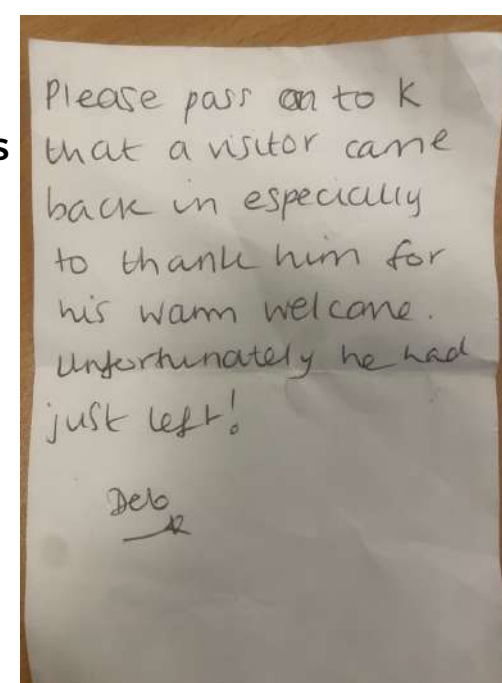 Please pass on to K
s
that a visitor came
back in especially
to thank him for
his warm welcome.
Unfortunately he had
just left!
Deb